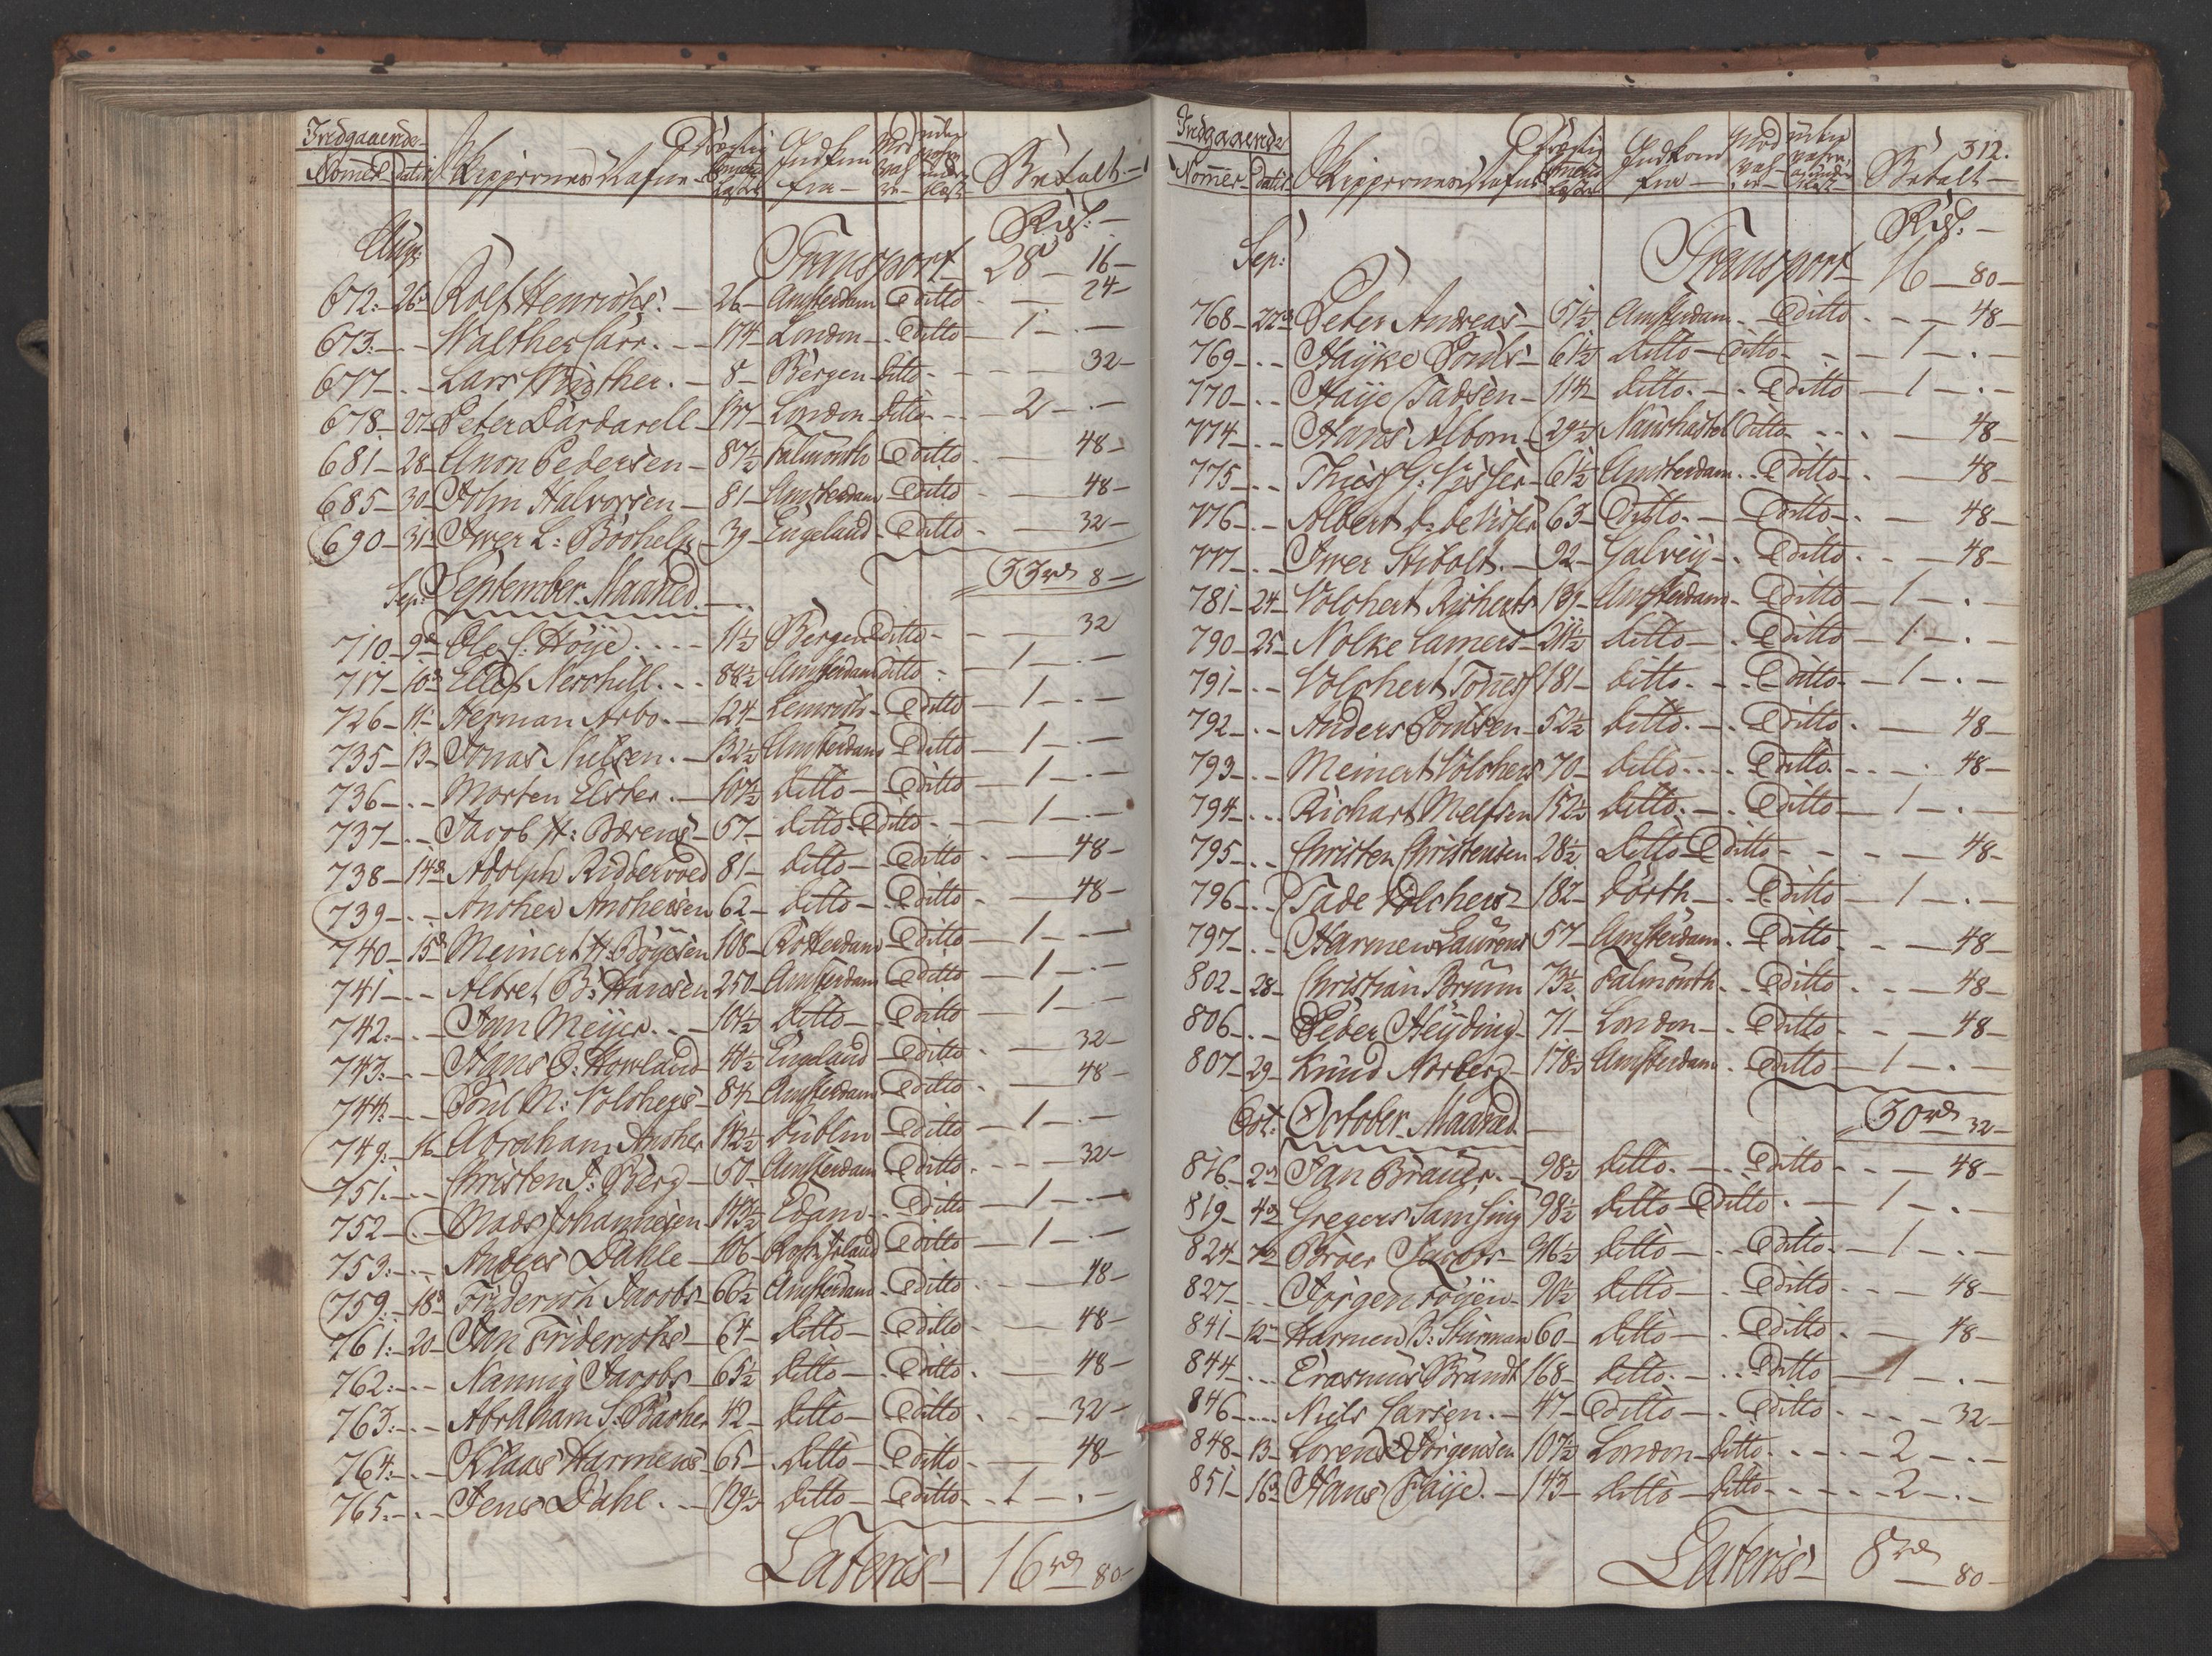 Indgaaende
Nomer Datis Skippernes Nafne Drægtig Comerce Læster Indkom fra Betalt
Rdl:
Aug: Transport 28 16
672 26 Roelf Henrichs 26 Amsterdam ditto 24
673 Walther Carr 174 London ditto 1
677 Lars 8 Bergen ditto 32
678 27 Peter Dardarell 137 London ditto 2
681 28 Anon Pedersen 87½ Falmouth ditto 48
685 30 John Halvorsen 81 Amsterdam ditto 48
690 31 Iwer L: 39 Engeland ditto 32
33 rd 8
Sep: September Maaned
710 9 Ole C. Höye 11½ Bergen ditto 32
717 10 Ellef Nerchill 88½ Amsterdam ditto 1
726 11 Herman Arbo 124 ditto 1
735 13 Jonas Nielsen 132½ Amsterdam ditto 1
736 Morten Elster 107½ ditto ditto 1
737 Jacob H: Børens 57 ditto ditto 1
738 14 Adolph Riddervoed 81 ditto ditto 48
739 Ancher Anchersen 62 ditto ditto 48
740 15 Meinert H: Böyesen 108 Rotterdam ditto 1
741 Albret B: Hansen 250 Amsterdam ditto 1
742 Jan Meyer 104½ ditto ditto 1
743 Hans O: Howland 41½ Engeland ditto 32
744 Poul N: Volchers 84 Amsterdam ditto 48
749 16 Abraham Ancher 142½ Dublin ditto 1
751 Christen J: Berg 50 Amsterdam ditto 32
752 Mads Johannesen 143½ Edam ditto 1
753 Anders Dahle 106 ditto 1
759 18 Friderich Jacobs 66½ Amsterdam ditto 48
761 20 Jan Friderichs 64 ditto ditto 48
762 Nannig Jacobs 65½ ditto ditto 48
763 Abraham S: Bacher 42 ditto ditto 32
764 Klaas Harmens 65 ditto ditto 48
765 Jens Dahl 129½ ditto ditto 1
Lateris 16 rd 80
312.
Indgaaende
Nomer Datis Skippernes Nafne Drægtig Comerce Læster Indkom fra Betalt
Rdl:
Sep: Transport 16 80
768 22 Peter Andreas 51½ Amsterdam ditto 48
769 Hayke Pouls 61½ ditto ditto 1
770 Haye Tadsen 114 ditto ditto 1
774 Hans Albom 29½ ditto 48
775 Thies G: Visser 61½ Amsterdam ditto 48
776 Albert d: de Visser 63 ditto ditto 48
777 Iwer Stibolt 92 Galveij ditto 48
781 24 Volchert Richerts 189 Amsterdam ditto 1
790 25 Nolke Lamers 211½ ditto ditto 1
791 Volchert Tönnes 181 ditto ditto 1
792 Anders Poulsen 52½ ditto ditto 48
793 Meinert Volchers 70 ditto ditto 48
794 Richart Melfsen 152½ ditto ditto 1
795 Christen Christensen 28½ ditto ditto 48
796 Tade Volchers 182 ditto 1
797 Harmen Laurens 57 Amsterdam ditto 48
802 28 Christian Bruun 73½ Falmouth ditto 48
806 Peter Heyding 71 London ditto 48
807 29 Knud Norberg 178½ Amsterdam ditto 1
30 rd 32
Oct: October Maaned
816 2 Jan Brauer 98½ ditto ditto 48
819 4 Gregers Samsing 98½ ditto ditto 1
824 7 Broer Jacobs 96½ ditto ditto 1
827 Jörgen Föyen 90½ ditto ditto 48
841 12 Harmen B: Sturman 60 ditto ditto 48
844 Erasmus Brandt 168 ditto ditto 1
846 Niels Larsen 47 ditto ditto 32
848 13 Lorens Jörgensen 107½ London ditto 2
851 16 Hans Faije 143 ditto ditto 2
Lateris 8 rd 80